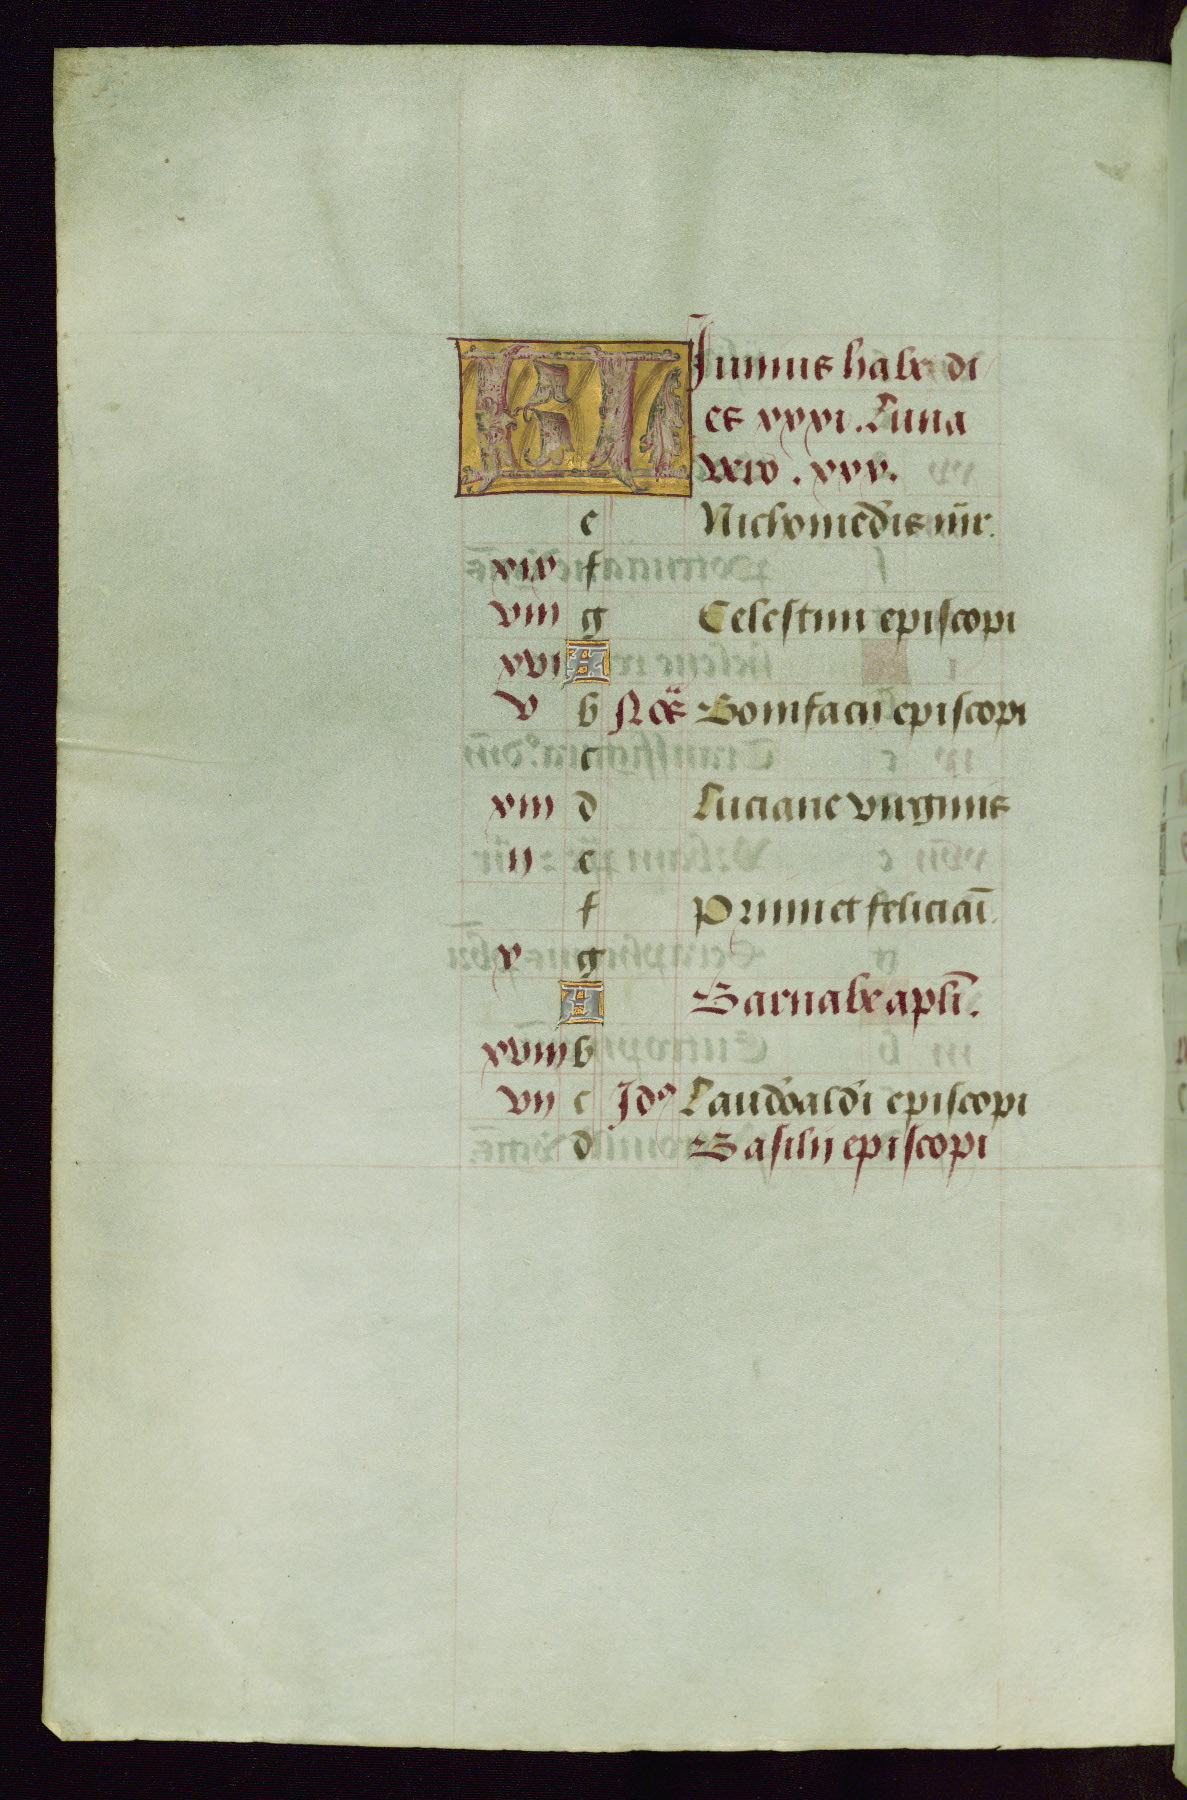 KL Iunius habet di
es xxxi. Luna
vero . xxx.
e Nichomedis mr̄.
xix f
viii g Celestini episcopi
xvi A
v b Noē Bonifacii episcopi
c
xiii d Luciane virginis
ii e
f Primi et feliciāi.
x g
A Barnabe apl̄i.
xviii b
vii c Idꝰ Laudoaldi episcopi
d Basilii episcopi